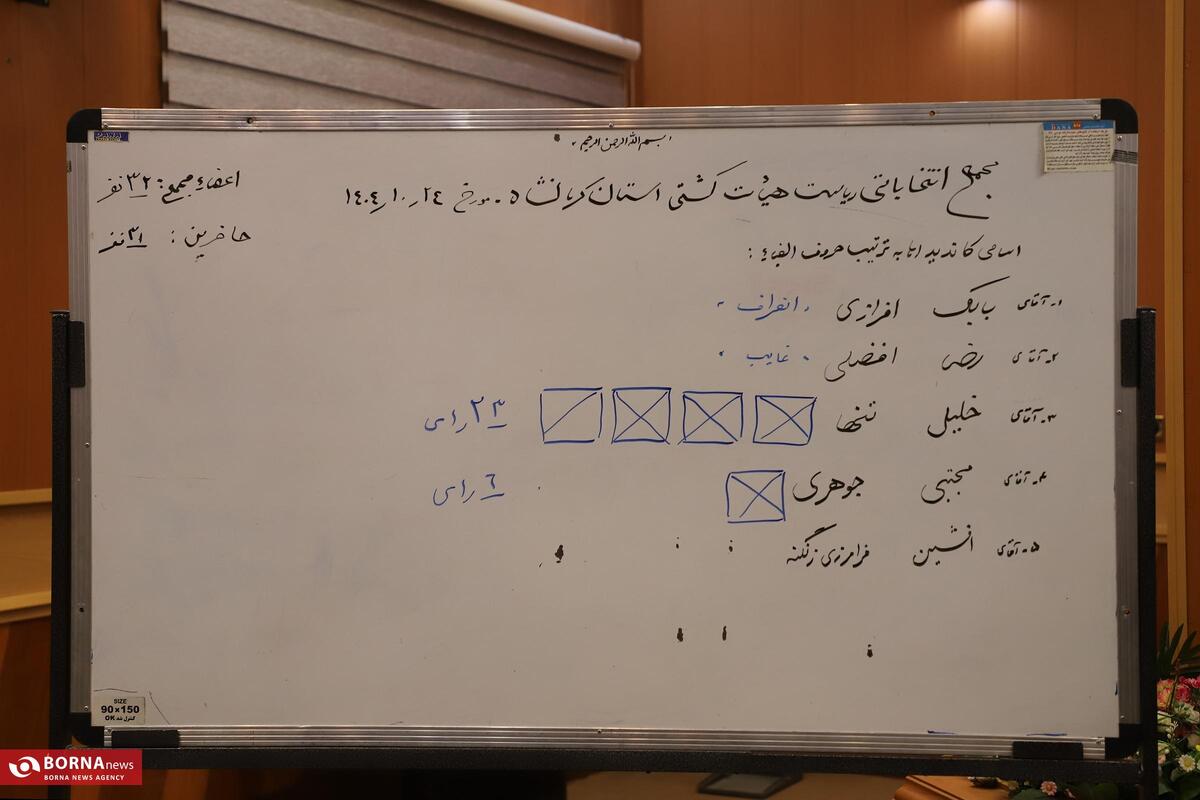 بسم الله الرحمن الرحیم
مجمع انتخاباتی ریاست هیأت کشتی استان کرمانشاه - مورخ ۱۴۰۴٫۱۰٫۲۴
اعضاء مجمع: ۳۲ نفر
حاضرین: ۳۱ نفر
اسامی کاندیداها به ترتیب حروف الفباء:
۱- آقای بابک افرازی "انصراف"
۲- آقای رضا افضلی "غایب"
۳- آقای خلیل تنها ۲۳ رای
۴- آقای مجتبی جوهری ۶ رای
۵- آقای افشین فرامرزی زنگنه
SIZE
90×150
کنترل شد OK
BORNA news
BORNA NEWS AGENCY